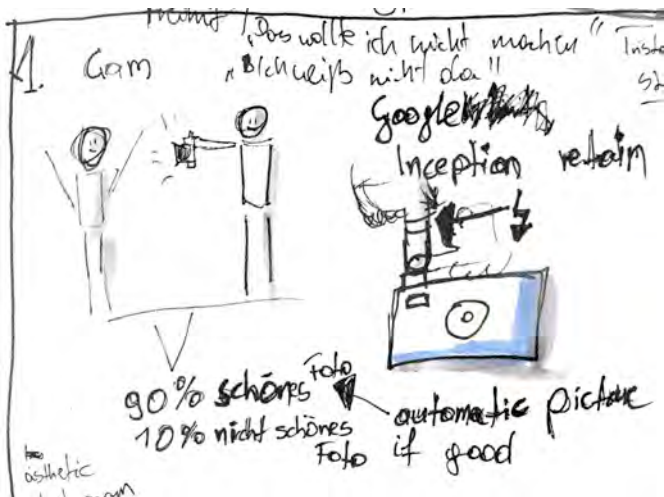 „Das wollte ich nicht machen"
1. Cam
nicht da"
Google
Inception retrain
90% schönes Foto
10% nicht schönes Foto
automatic picture
if good
ästhetic